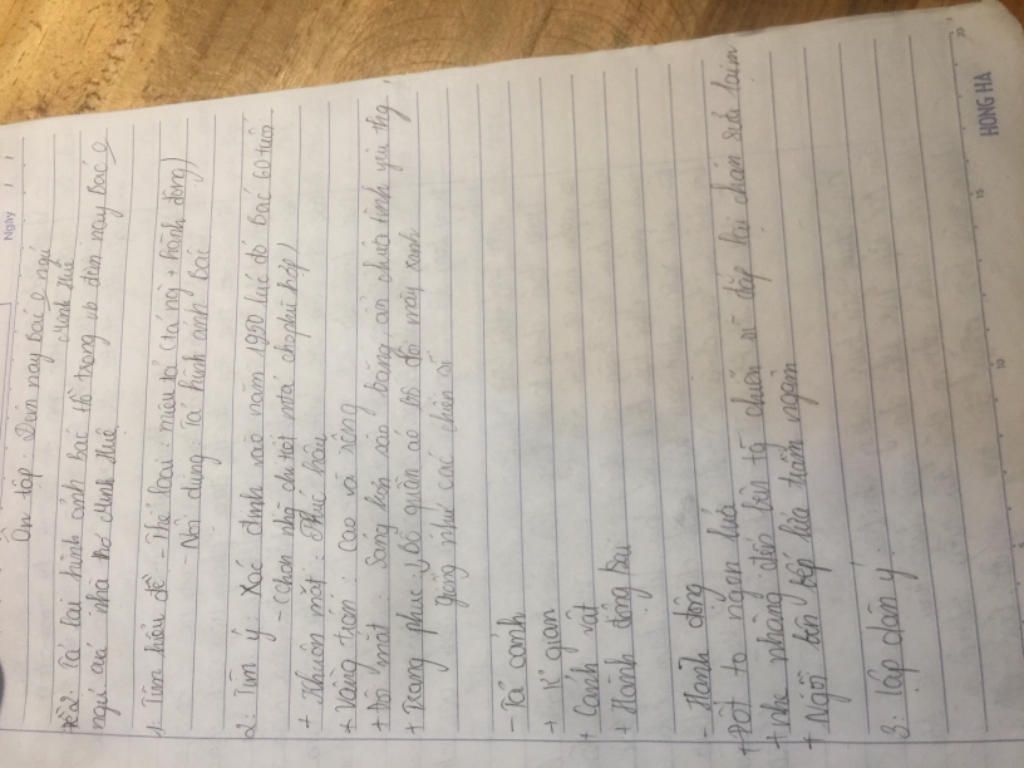 Ngày
Ôn tập: Đêm nay bác 0 ngủ
Minh Huệ
Đề 2: Tả lại hình ảnh bác Hồ trong vb đêm nay bác 0
ngủ của nhà thơ Minh Huệ
1. Tìm hiểu đề - Thể loại: miêu tả (tả ng + hành động)
- Nội dung: Tả hình ảnh Bác
2: Tìm ý: Xác định vào năm 1950 lúc đó Bác 60 tuổi
- (Chọn nhg chi tiết mtả cho phù hợp)
+ Khuôn mặt: Phúc hậu
+ Vầng trán: cao và rộng
+ Đôi mắt: Sáng hơn sao băng ẩn chứa tình yêu thg
+ Trang phục: Bộ quần áo màu xanh
giống như các chiến sĩ
- Tả cảnh
+ K' gian
+ Cảnh vật
+ Hành động Bác
- Hành động
+ Đốt to ngọn lửa
+ nhẹ nhàng đến bên từ chiến sĩ đắp lại chăn
+ Ngồi bên bếp lửa trầm ngâm
3: lập dàn ý
HONG HA
10
15